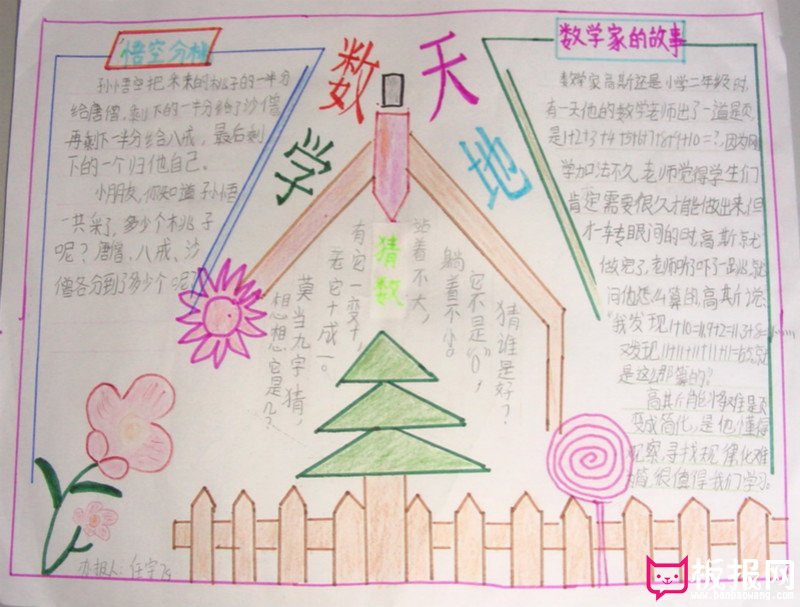 数学天地
悟空分桃
孙悟空把未来的桃子的一半分
给唐僧,剩下的一半分给了沙僧,
再剩下一半分给八戒,最后剩
下的一个归他自己。
小朋友,你知道孙悟
一共采了多少个桃子
呢?唐僧、八戒、沙
僧各分到了多少个呢?
猜数
站着不大,
躺着不小。
它不是“0”,
猜谁是好?
有它一变十,
无它十成一。
莫当九字猜,
想想它是几?
数学家的故事
数学家高斯还是小学二年级时,
有一天他的数学老师出了一道题
是1+2+3+4+5+6+7+8+9+10=?,因为
学加法不久,老师觉得学生们
肯定需要很久才能做出来,但
才一转眼间的时,高斯就
做完了,老师吓了一跳,就
问他怎么算的,高斯说:
“我发现1+10=11,9+2=11,3+8=
又发现11+11+11+11+11=55,就
是这么那算的。”
高斯能将难题
变成简化,是他懂得
观察,寻找规律化难
很值得我们学习。
办报人:任宇
板报网
www.banbaowang.com